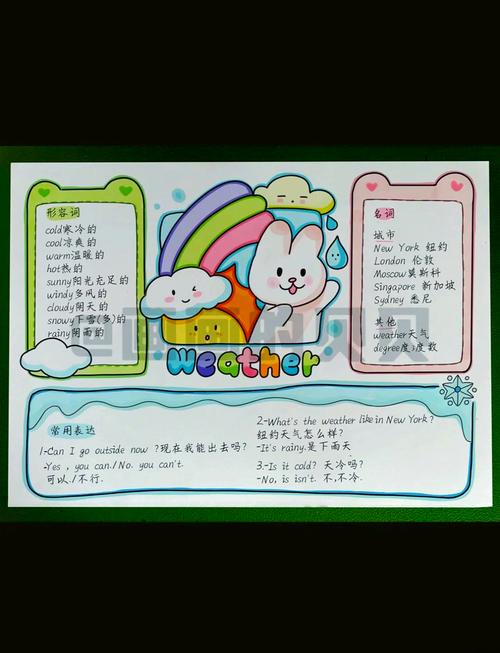 形容词
cold寒冷的
cool凉爽的
warm温暖的
hot热的
sunny阳光充足的
windy多风的
cloudy阴天的
snowy下雪(多)的
rainy阴雨的
Weather
名词
城市
New York 纽约
London 伦敦
Moscow莫斯科
Singapore 新加坡
Sydney 悉尼
其他
weather天气
degree度;度数
常用表达
1-Can I go outside now ?现在我能出去吗?
-Yes , you can./No. you can't.
可以./不行.
2-What's the weather like in New York?
纽约天气怎么样?
-It's rainy.是下雨天
3-Is it cold? 天冷吗?
-No, is isn't. 不,不冷.